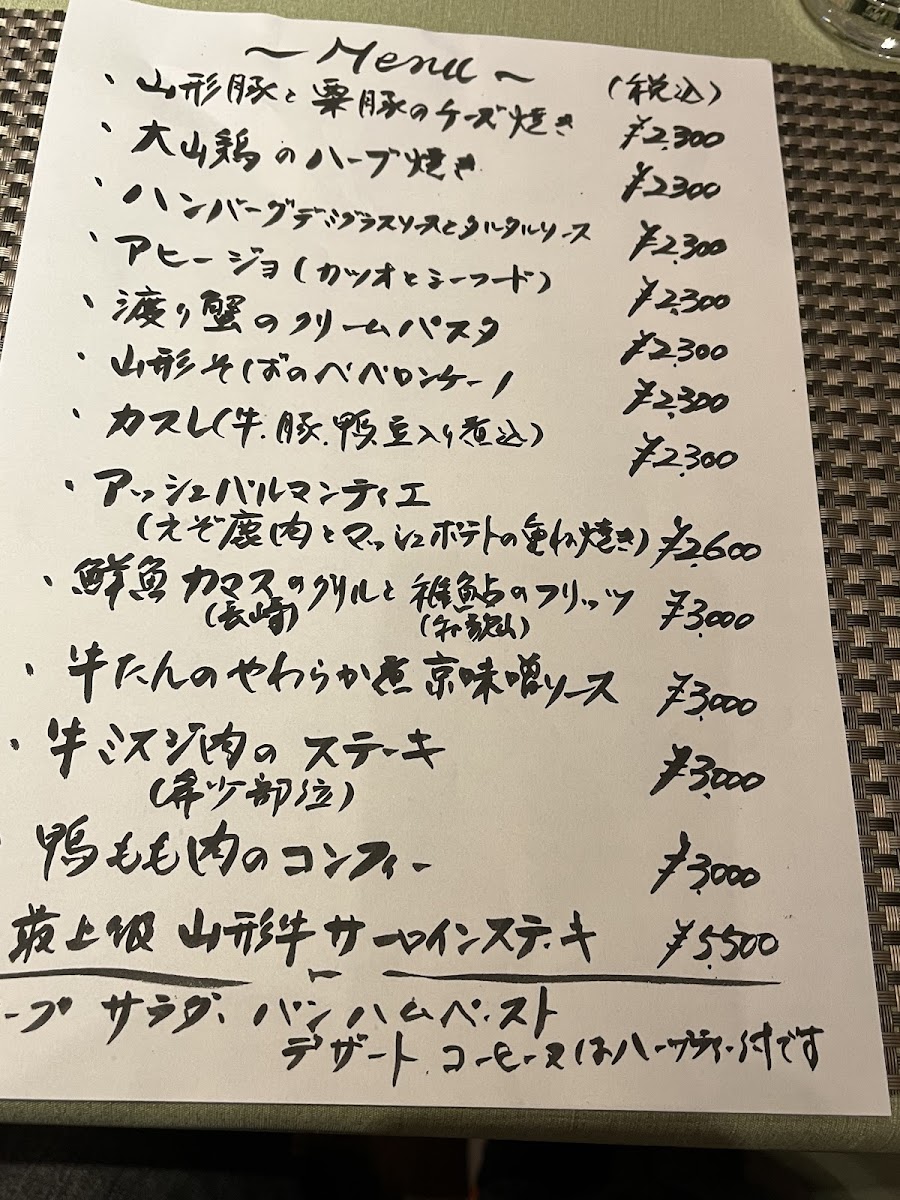 ～Menu～
(税込)
・山形豚と栗豚のチーズ焼き ¥2,300
・大山鶏のハーブ焼き ¥2,300
・ハンバーグデミグラスソースとタルタルソース ¥2,300
・アヒージョ(カツオとシーフード) ¥2,300
・渡り蟹のクリームパスタ ¥2,300
・山形そばのペペロンチーノ ¥2,300
・カスレ(牛.豚.鴨.豆入り煮込) ¥2,300
・アッシュパルマンティエ
(えぞ鹿肉とマッシュポテトの重ね焼き) ¥2,600
・鮮魚カマスのグリルと稚鮎のフリッツ ¥3,000
(長崎) (和歌山)
・牛たんのやわらか煮京味噌ソース ¥3,000
・牛ミスジ肉のステーキ ¥3,000
(希少部位)
・鴨もも肉のコンフィー ¥3,000
最上級 山形牛サーロインステーキ ¥5,500
ープ サラダ、パン ハムペースト
デザート、コーヒー又はハーブティー付です